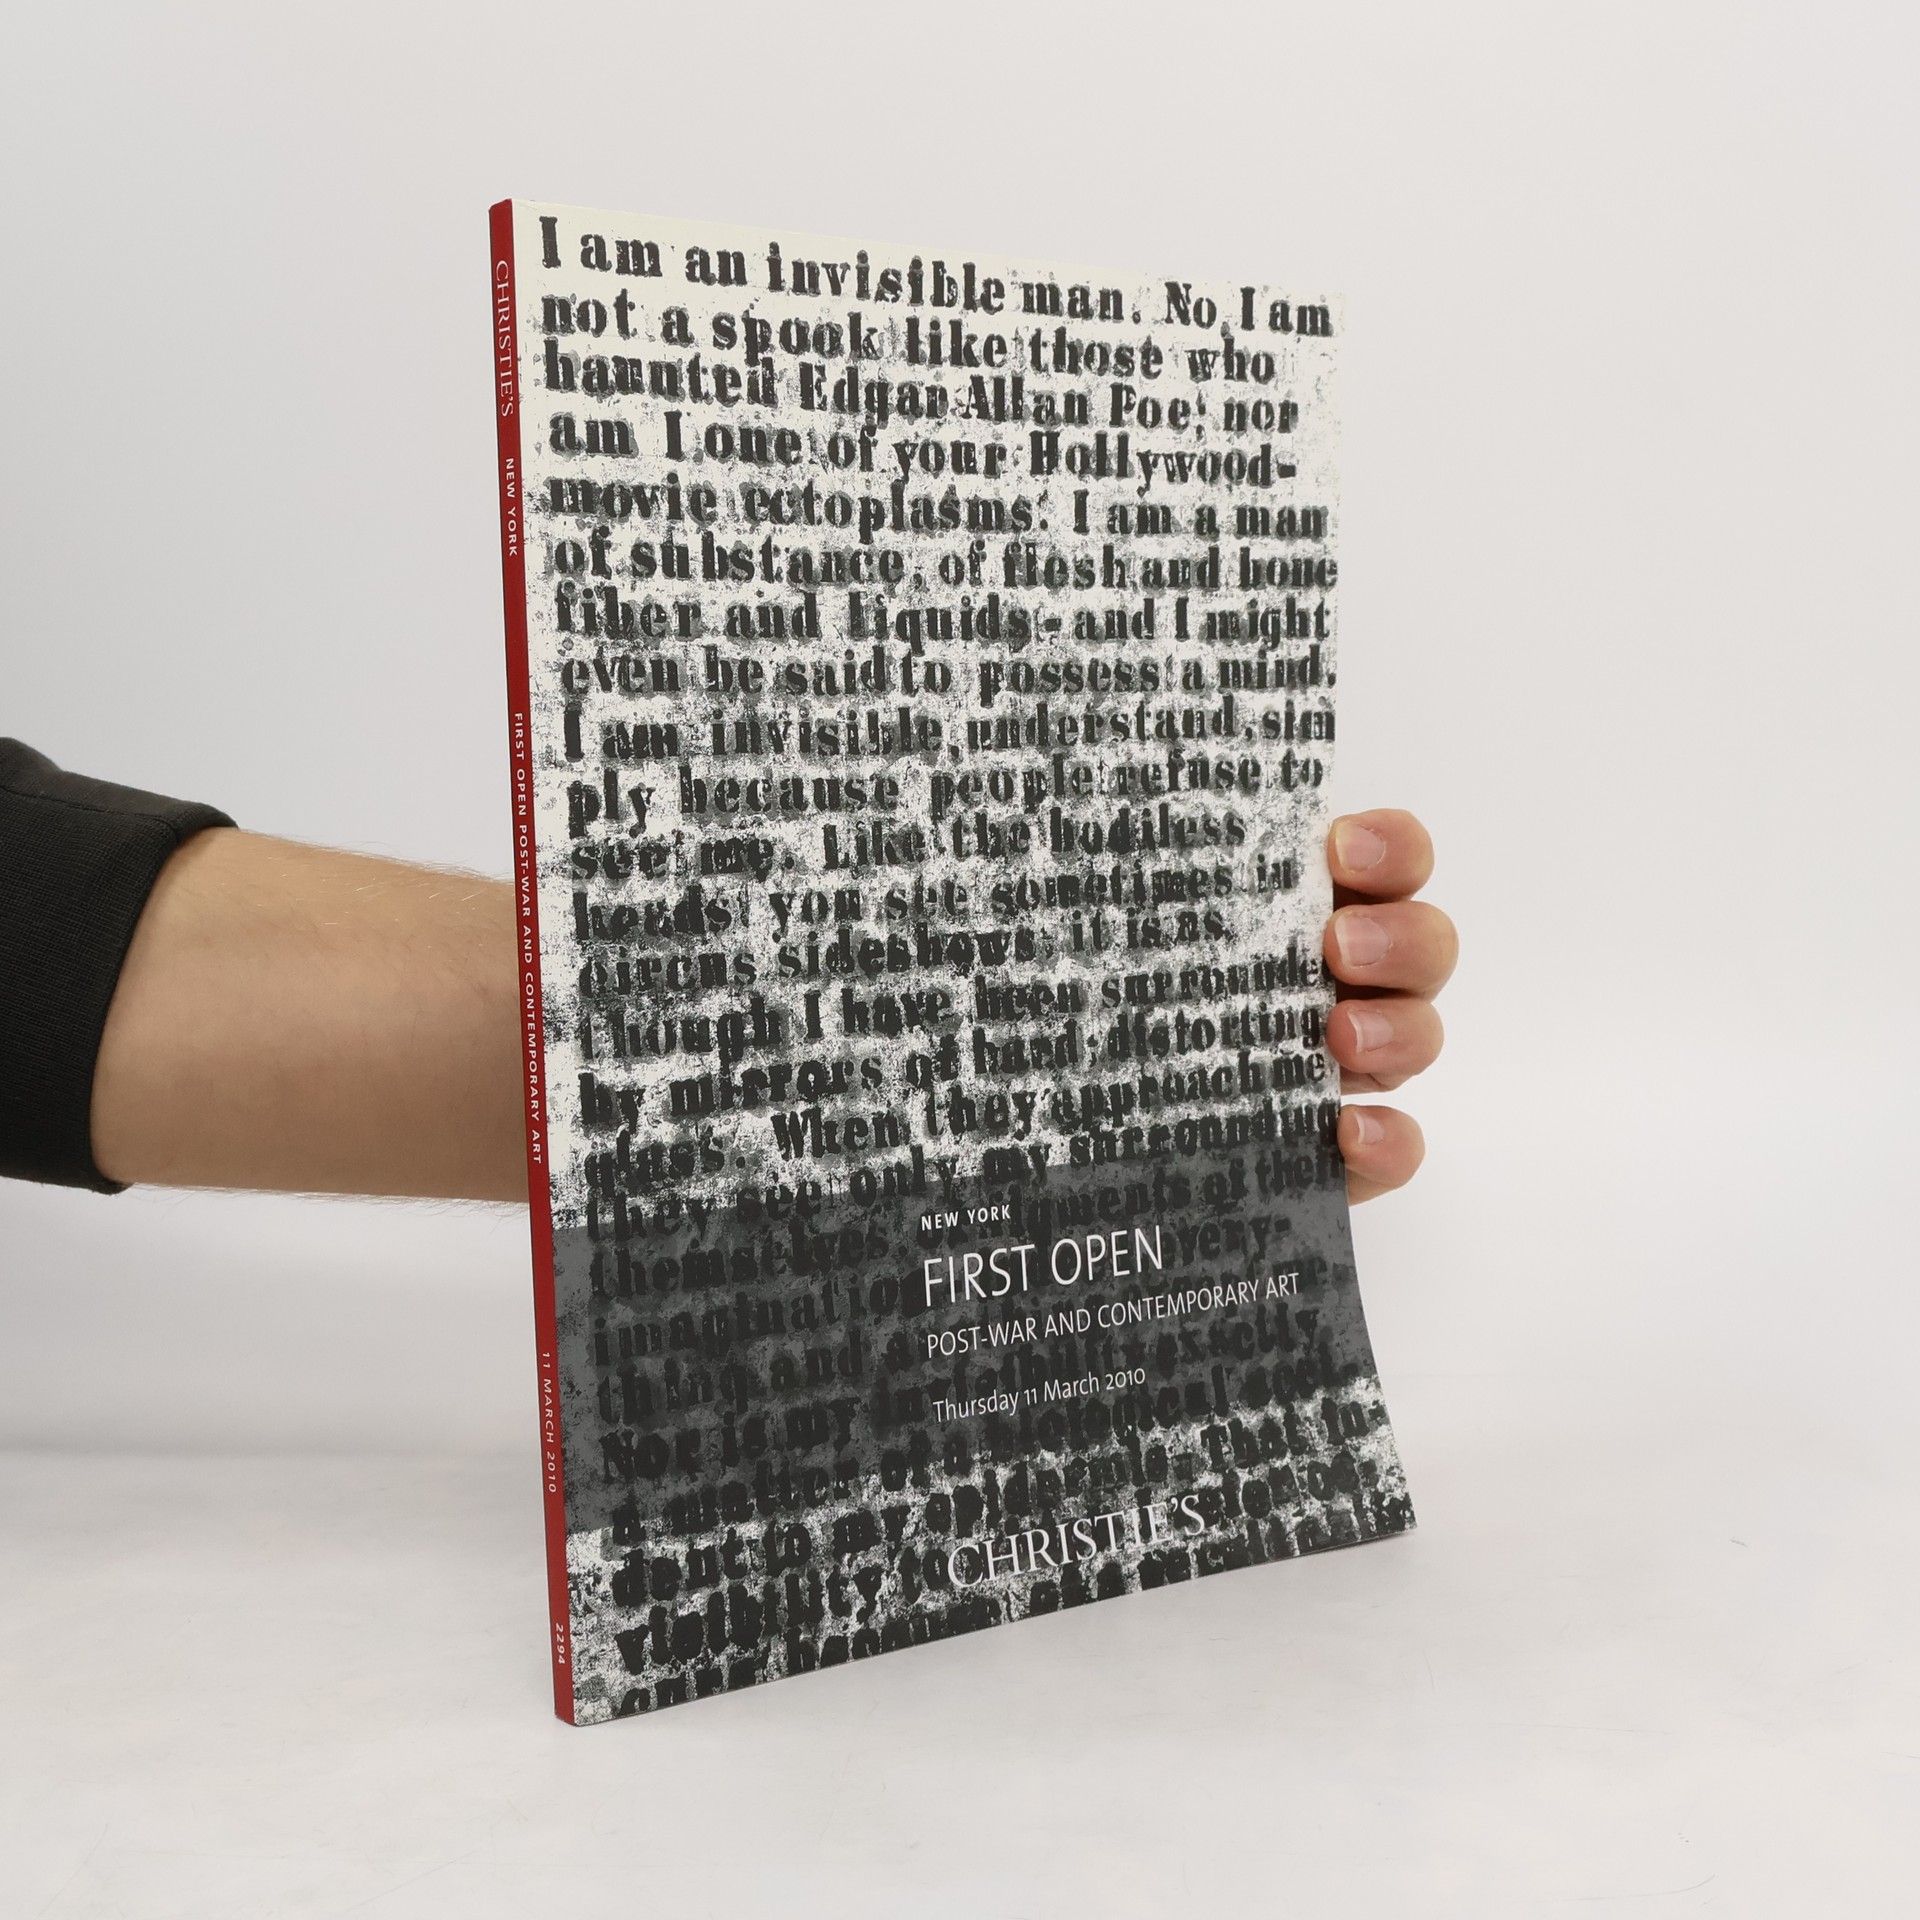 CHRISTIE'S NEW YORK FIRST OPEN POST-WAR AND CONTEMPORARY ART 11 MARCH 2010 2294
I am an invisible man. No I am
not a spook like those who
haunted Edgar Allan Poe; nor
am I one of your Hollywood-
movie ectoplasms. I am a man
of substance, of flesh and bone
fiber and liquids - and I might
even be said to possess a mind.
I am invisible, understand, sim
ply because people refuse to
see me. Like the bodiless
heads you see sometimes in
circus sideshows, it is as
though I have been surrounde
by mirrors of hard, distorting
glass. When they approach me
they see only my surrounding
themselves
imagination very-
thing and
NEW YORK
FIRST OPEN
POST-WAR AND CONTEMPORARY ART
Thursday 11 March 2010
Nor is my exactly
a matter of a
dent to my epidermis. That in-
visibility to
CHRISTIE'S